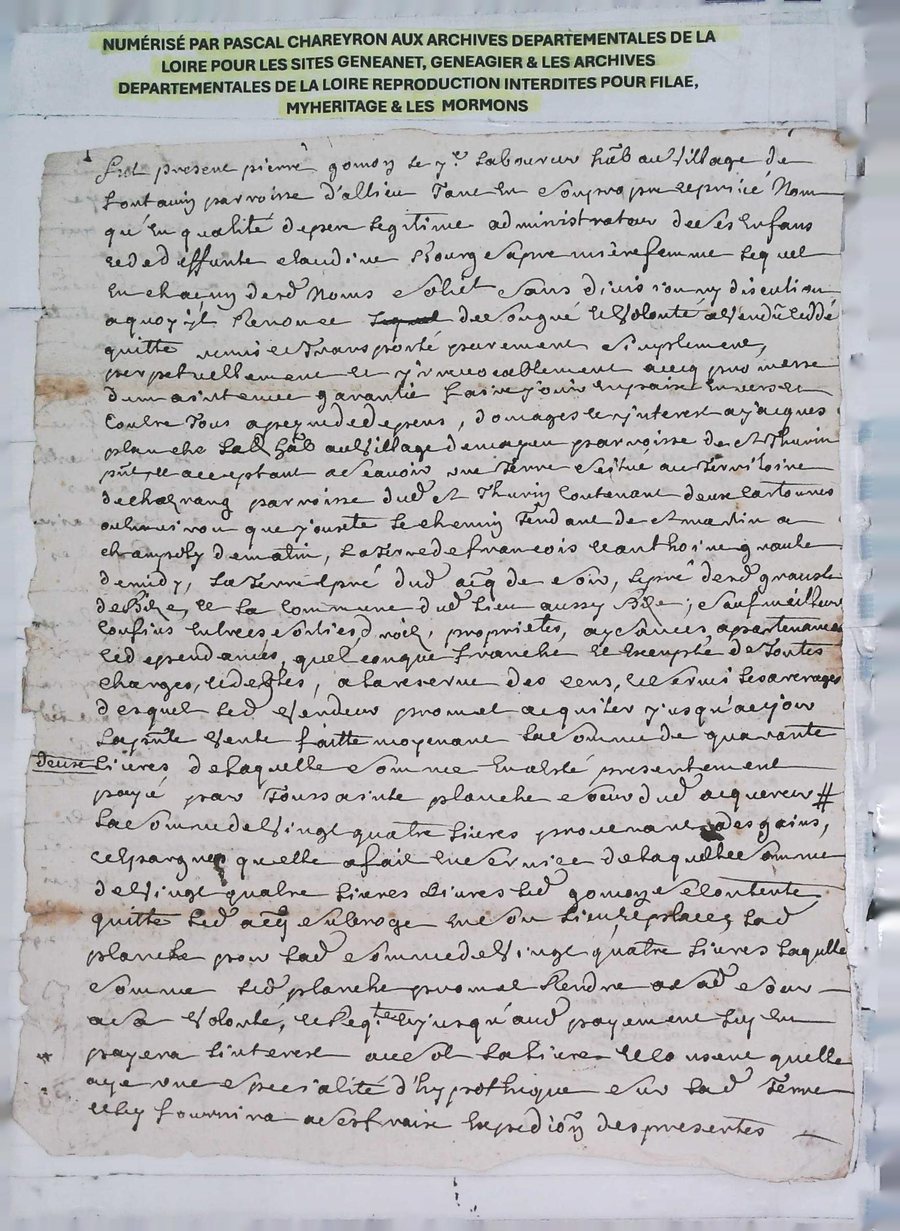 NUMÉRISÉ PAR PASCAL CHAREYRON AUX ARCHIVES DEPARTEMENTALES DE LA
LOIRE POUR LES SITES GENEANET, GENEAGIER & LES ARCHIVES
DEPARTEMENTALES DE LA LOIRE REPRODUCTION INTERDITES POUR FILAE,
MYHERITAGE & LES MORMONS
fut present pierre gomoy le je laboureur hab au Village de
parroisse d'allieu Tant en son propre et privé Nom
qu'en qualité de pere legitime administrateur de ses Enfans
et de deffunte claudine Bourge sa premiere femme lequel
En chacun desd Noms solid sans division ny discution
a quoy jl Renonce de son gré et Volonté a Vendu ceddé
quitté remis et Transporté purement simplement,
perpetuellement et jrrevocablement avecq promesse
de maintenue garantie faire jouir en paix envers et
Contre Tous a peyne de depens, domages et jnterest a jacques
planche lab hab au Village de parroisse de st Thurin
pnt et acceptant a scavoir une Terre situé au Territoire
de parroisse dud st Thurin Contenant deux Cartonnes
ou environ que jouxte le chemin Tendant de st martin a
champoly de matin, la Terre de francois et anthoine
de midy, la Terre et pré dud acq de soir, le pré desd
de Bize, et la Commune dud Lieu aussy Bize; sauf meilleurs
Confins Entrées sorties droits, proprietés, aysances, apartenances
et dependances, quelconque franche et Exempte de Toutes
charges, et debtes, a la reserve des cens, et servis les arrerages
desquel led Vendeur promet acquiter jusqu'a ce jour
la pnte Vente faitte moyenant la somme de quarante
deux Livres de laquelle somme En a esté presentement
payé par Toussainte planche soeur dud acquereur #
la somme de Vingt quatre Livres provenant des gains,
et Epargnes quelle a fait en service de laquelle somme
de Vingt quatre Livres Livres led gomoy se Contente
quitte led acq subroge en son Lieu et place lad
planche pour lad somme de Vingt quatre Livres laquelle
somme led planche promet Rendre a sad soeur
a sa Volonté, et Reqte et jusqu'aud payement luy En
payera l'interest au sol la Livre et Consent quelle
aye une specialité d'hypothique sur lad Terre
et luy fournira a ses frais Expedion des presentes